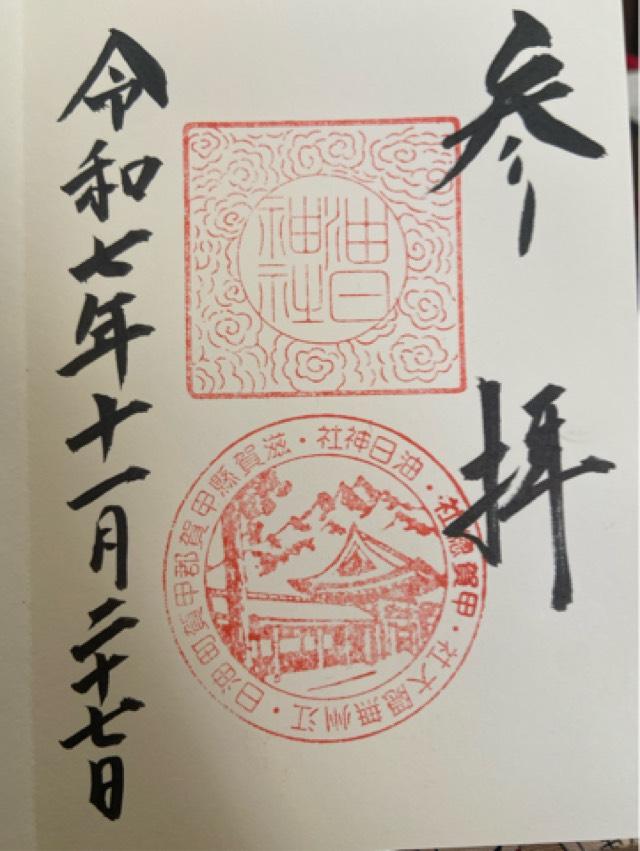 参拝
油日
神社
甲賀總社・油日神社・滋賀縣甲賀郡甲賀町油日・江州無隠大社・
令和七年十一月二十七日